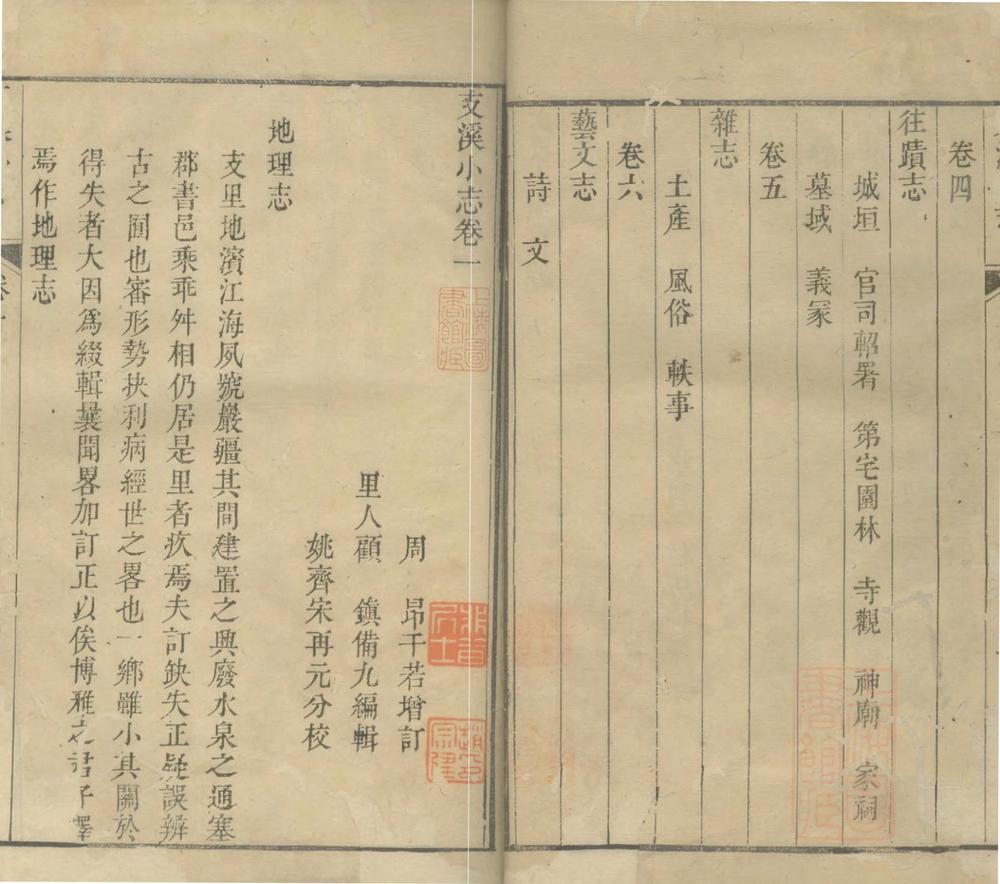 卷四
往蹟志
城垣　官司軺署　第宅園林　寺觀　神廟　家祠
墓域　義冢
卷五
雜志
土產　風俗　軼事
卷六
藝文志
詩　文
支溪小志卷一
周　昂千若增訂
里人顧　鎮備九編輯
姚齊宋再元分校
地理志
支里地濱江海夙號巖疆其間建置之興廢水泉之通塞
郡書邑乘乖舛相仍居是里者疚焉夫訂缺失正疑誤辨
古之圖也審形勢抉利病經世之畧也一鄉雖小其關於
得失者大因爲綴輯曩聞畧加訂正以俟博雅之君子擇
焉作地理志
上海圖書館藏
非昔居士
趙氏宗建
上海圖書館藏